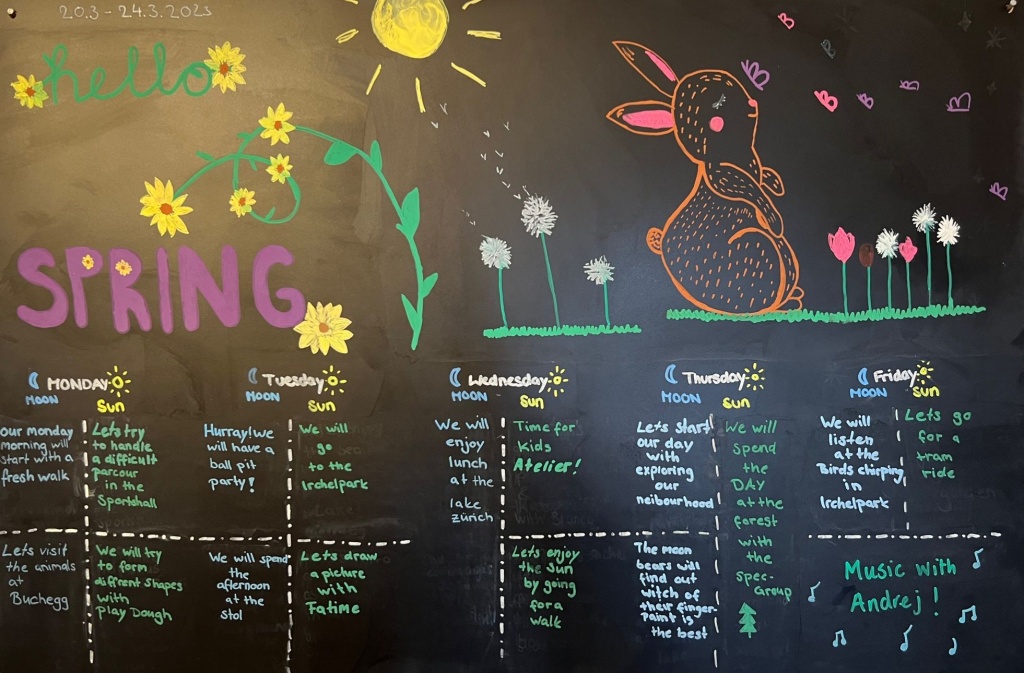 20.3 - 24.3.2023
hello
SPRING
MONDAY
MOON
Sun
our monday
morning will
start with a
fresh walk
Lets try
to handle
a difficult
parcour
in the
Sportshall
Lets visit
the animals
at
Buchegg
We will try
to form
different shapes
with
Play Dough
Tuesday
MOON
Sun
Hurray! we
will have a
ball pit
party!
We will
go
to the
Irchelpark
We will spend
the
afternoon
at the
stol
Lets draw
a picture
with
Fatime
Wednesday
MOON
Sun
We will
enjoy
lunch
at the
lake
zürich
Time for
Kids
Atelier!
Lets enjoy
the sun
by going
for a
walk
Thursday
MOON
Sun
Lets start
our day
with
exploring
our
neibourhood
The moon
bears will
find out
witch of
their finger-
paint is
the best
We will
spend
the
DAY
at the
forest
with
the
spec-
Group
Friday
MOON
Sun
We will
listen
at the
Birds chirping
in
Irchelpark
Lets go
for a
tram
ride
Music with
Andrej!